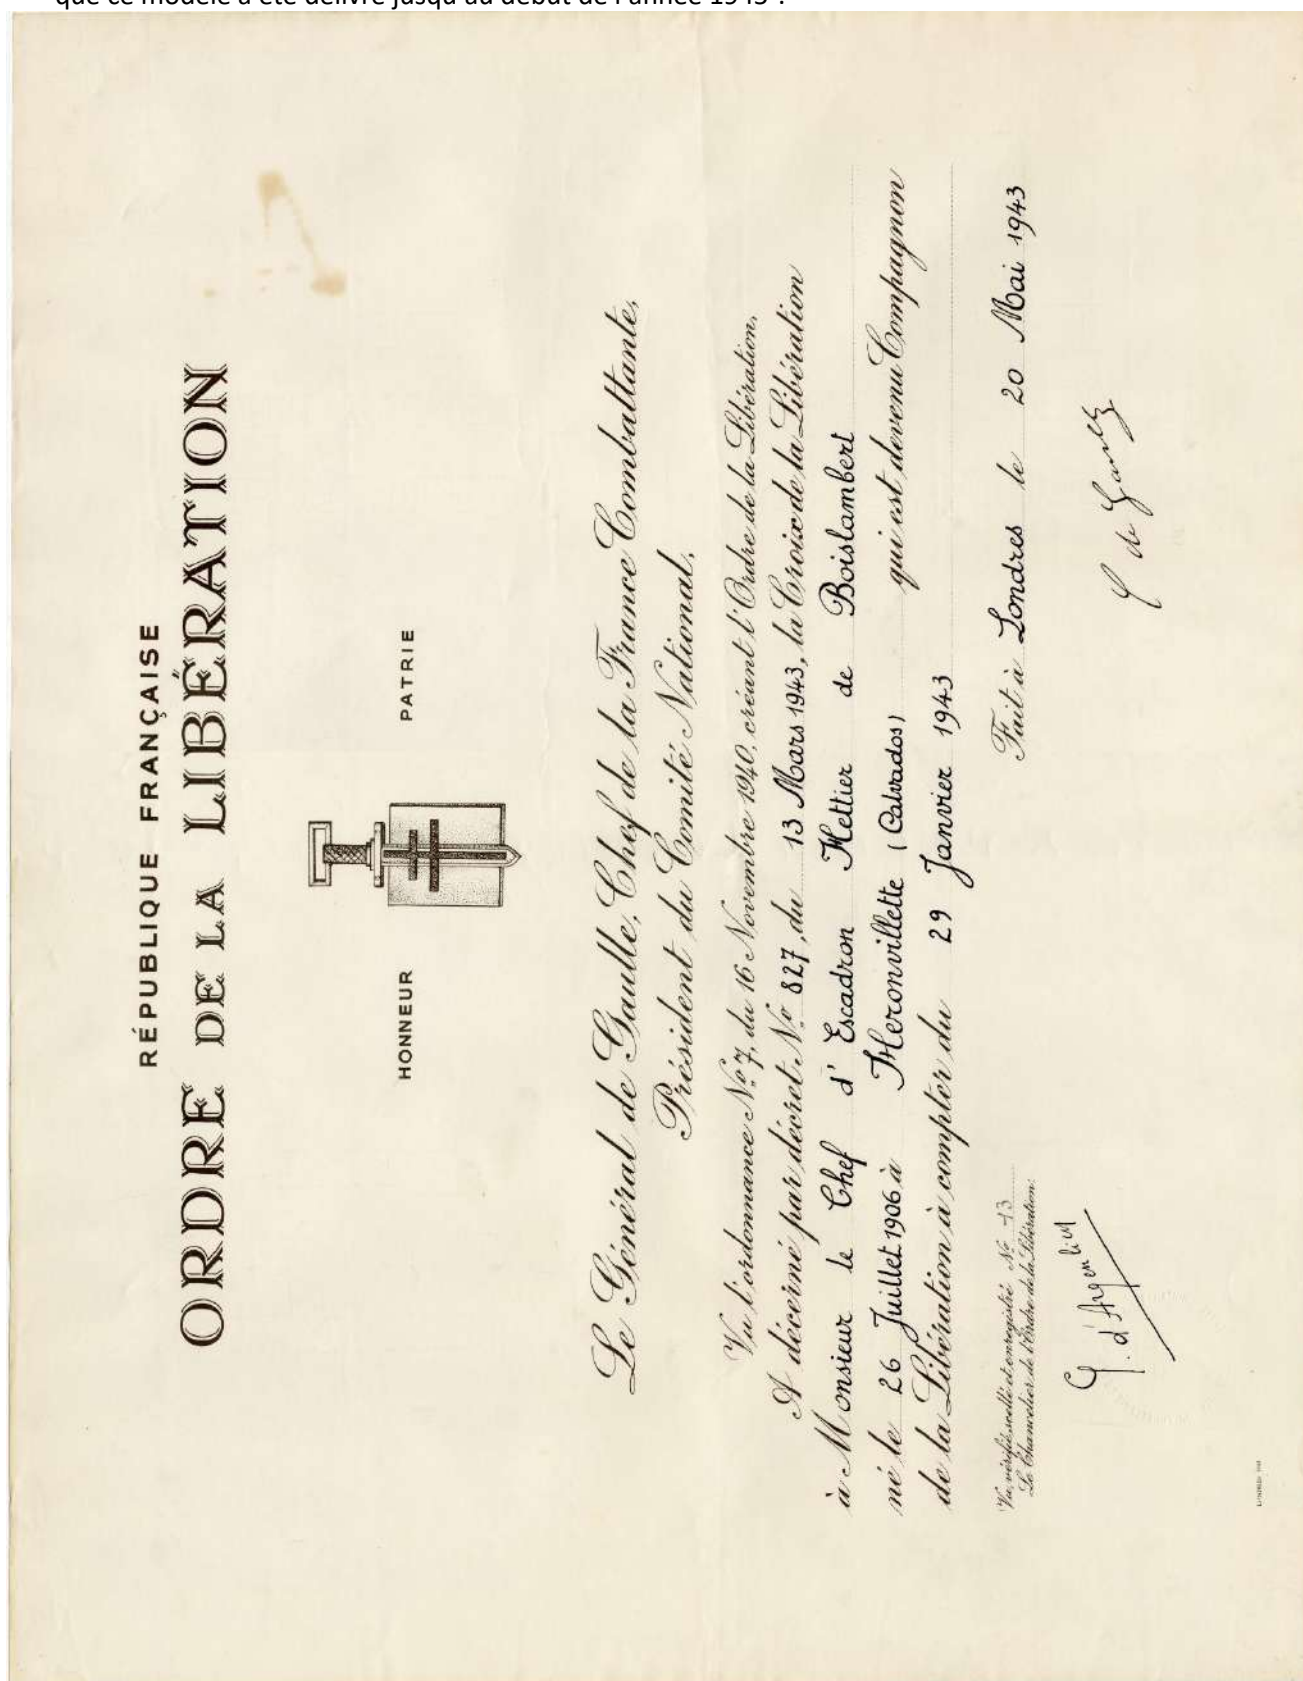 que ce modèle a été délivré jusqu'au début de l'année 1943 :
RÉPUBLIQUE FRANÇAISE
ORDRE DE LA LIBÉRATION
HONNEUR PATRIE
Le Général de Gaulle, Chef de la France Combattante,
Président du Comité National,
Vu l'ordonnance No 7, du 16 Novembre 1940, créant l'Ordre de la Libération,
A décerné par décret No 827, du 13 Mars 1943, la Croix de la Libération
à Monsieur le Chef d'Escadron Hettier de Boislambert
né le 26 Juillet 1906 à Heronvillette (Calvados) qui est devenu Compagnon
de la Libération à compter du 29 Janvier 1943
Fait à Londres le 20 Mai 1943
Vu, vérifié, scellé et enregistré No 13
Le Chancelier de l'Ordre de la Libération:
G. d'Argenlieu
C de Gaulle